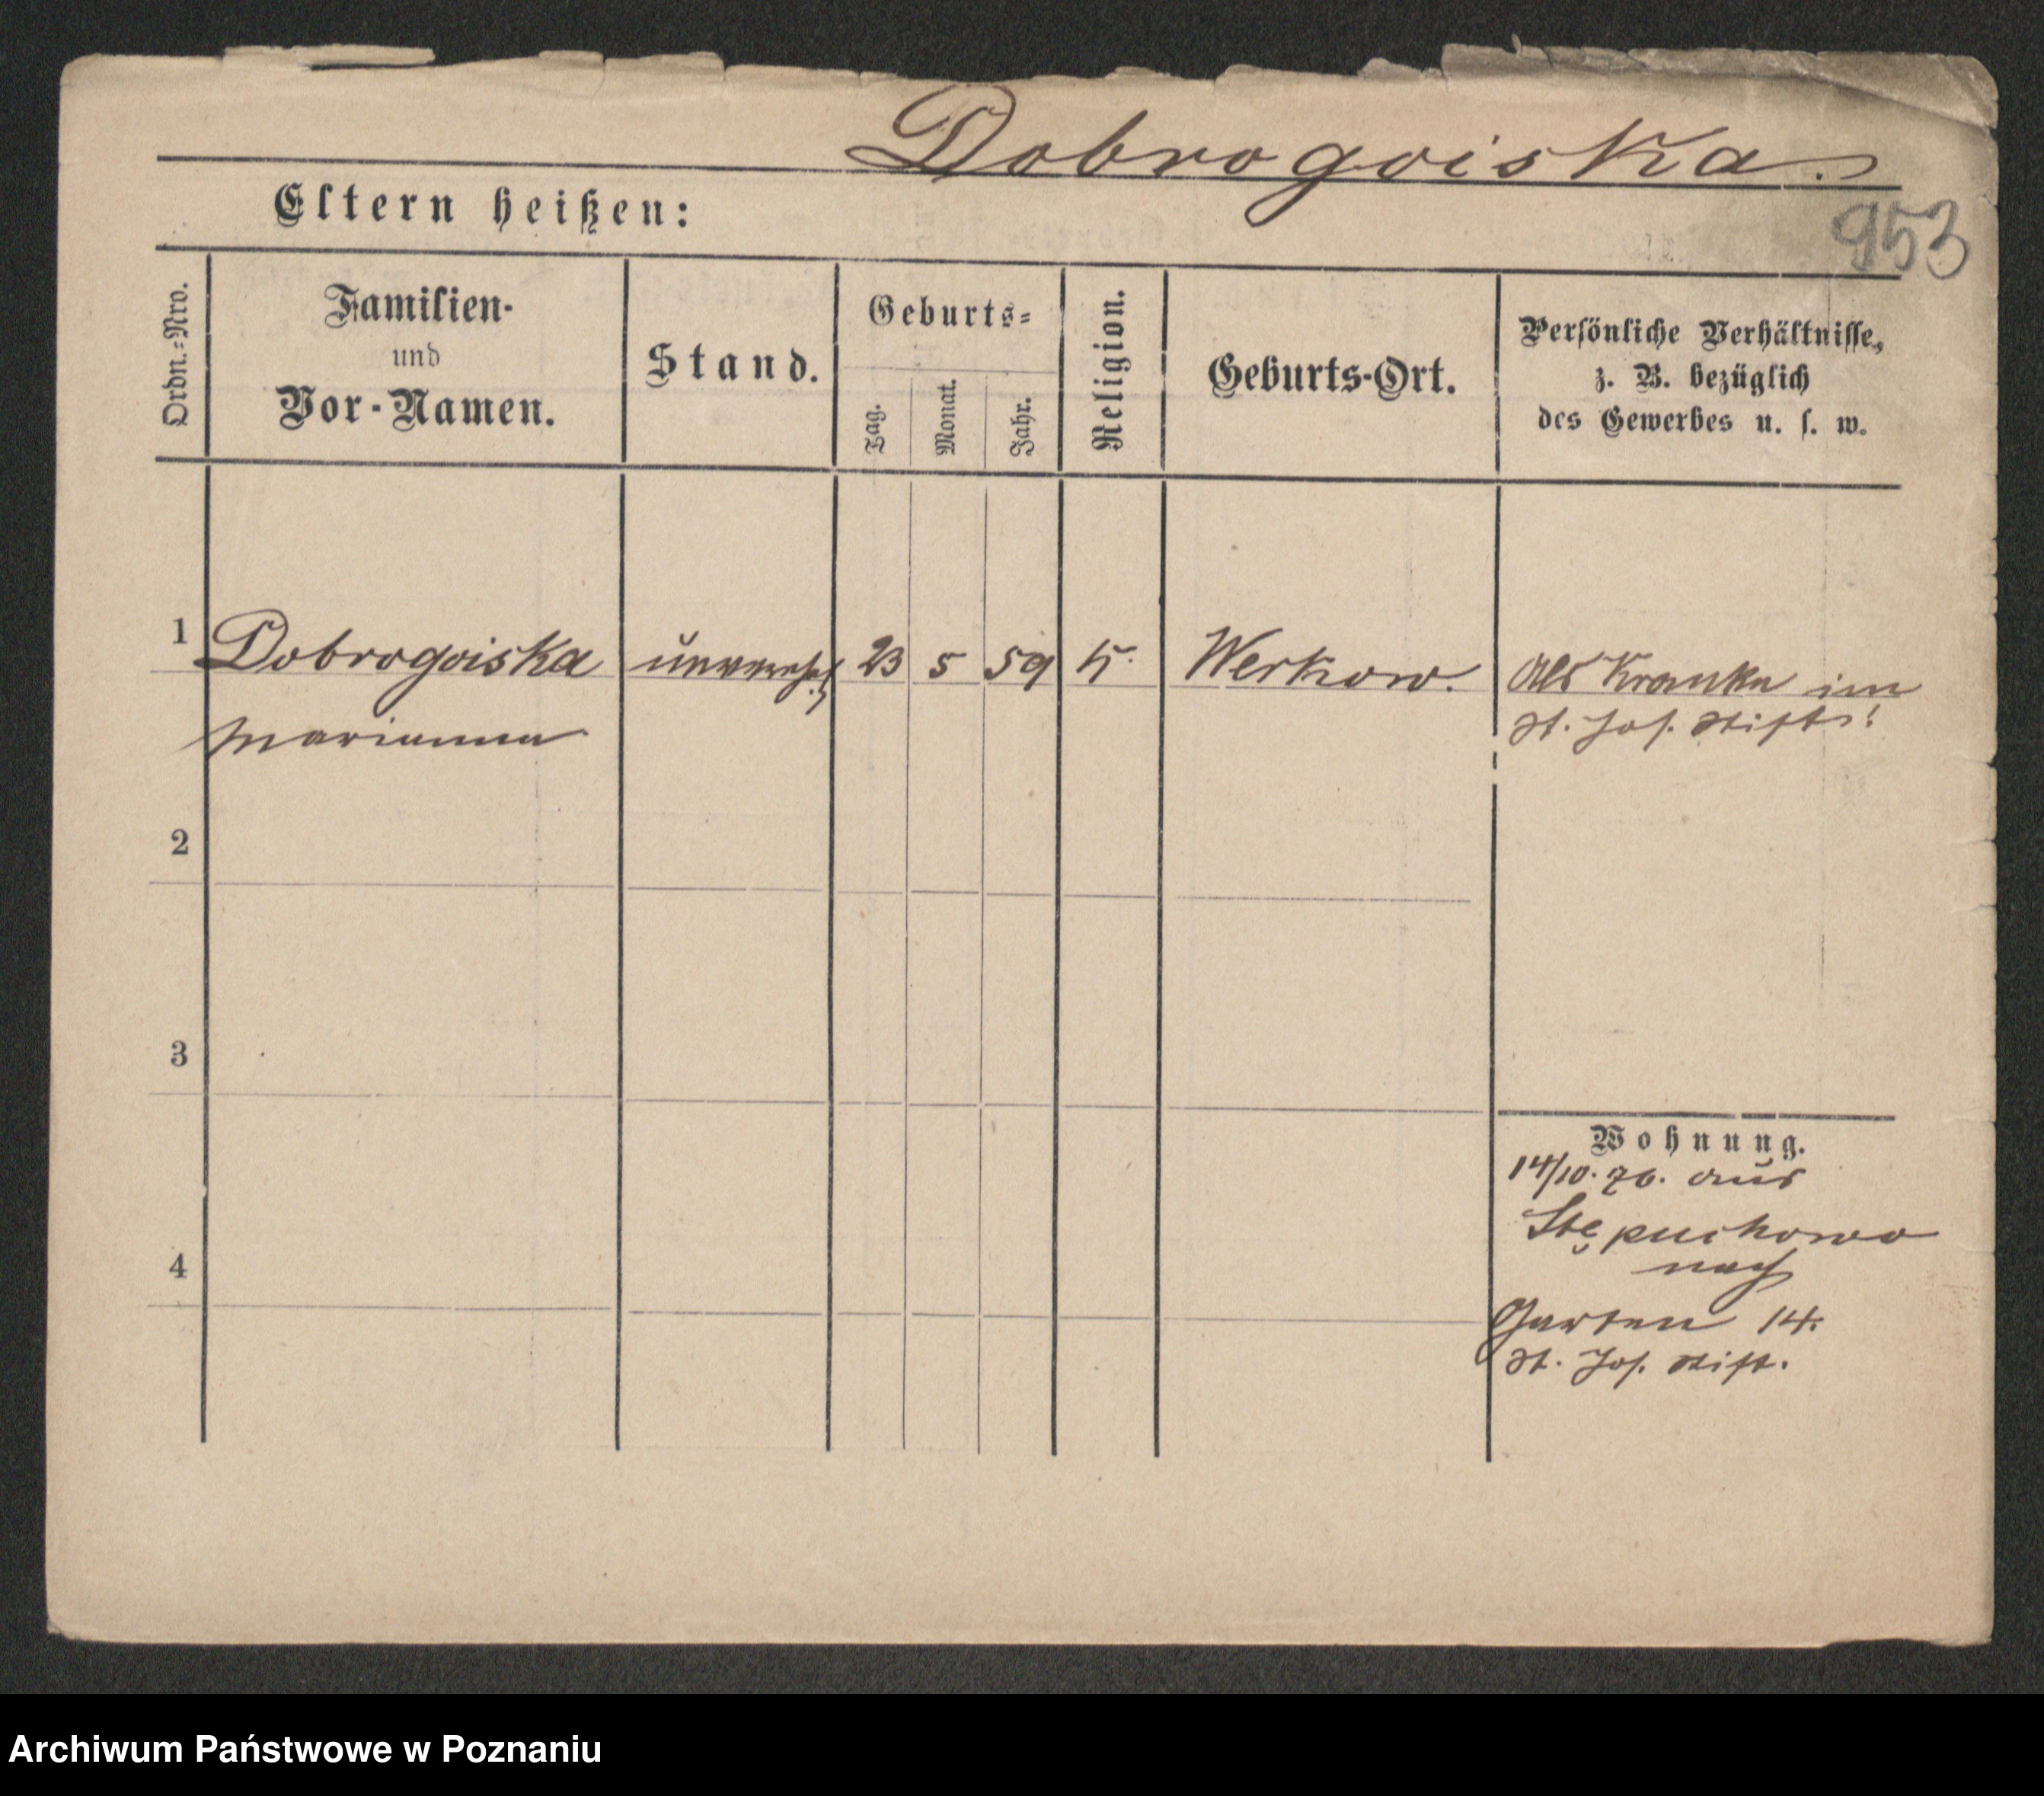 Dobrogoiska.
Eltern heißen:
953
Ordn.-Nro.
Familien-
und
Vor-Namen.
Stand.
Geburts-
Tag.
Monat.
Jahr.
Religion.
Geburts-Ort.
Persönliche Verhältnisse,
z. B. bezüglich
des Gewerbes u. s. w.
1 Dobrogoiska unvereh. 23 5 59 K. Werkow. Als Kranke im
Marianna St. Jos. Stift!
2
3
Wohnung.
14/10. 76. aus
Stępuchowo
nach
4
Garten 14.
St. Jos. Stift.
Archiwum Państwowe w Poznaniu